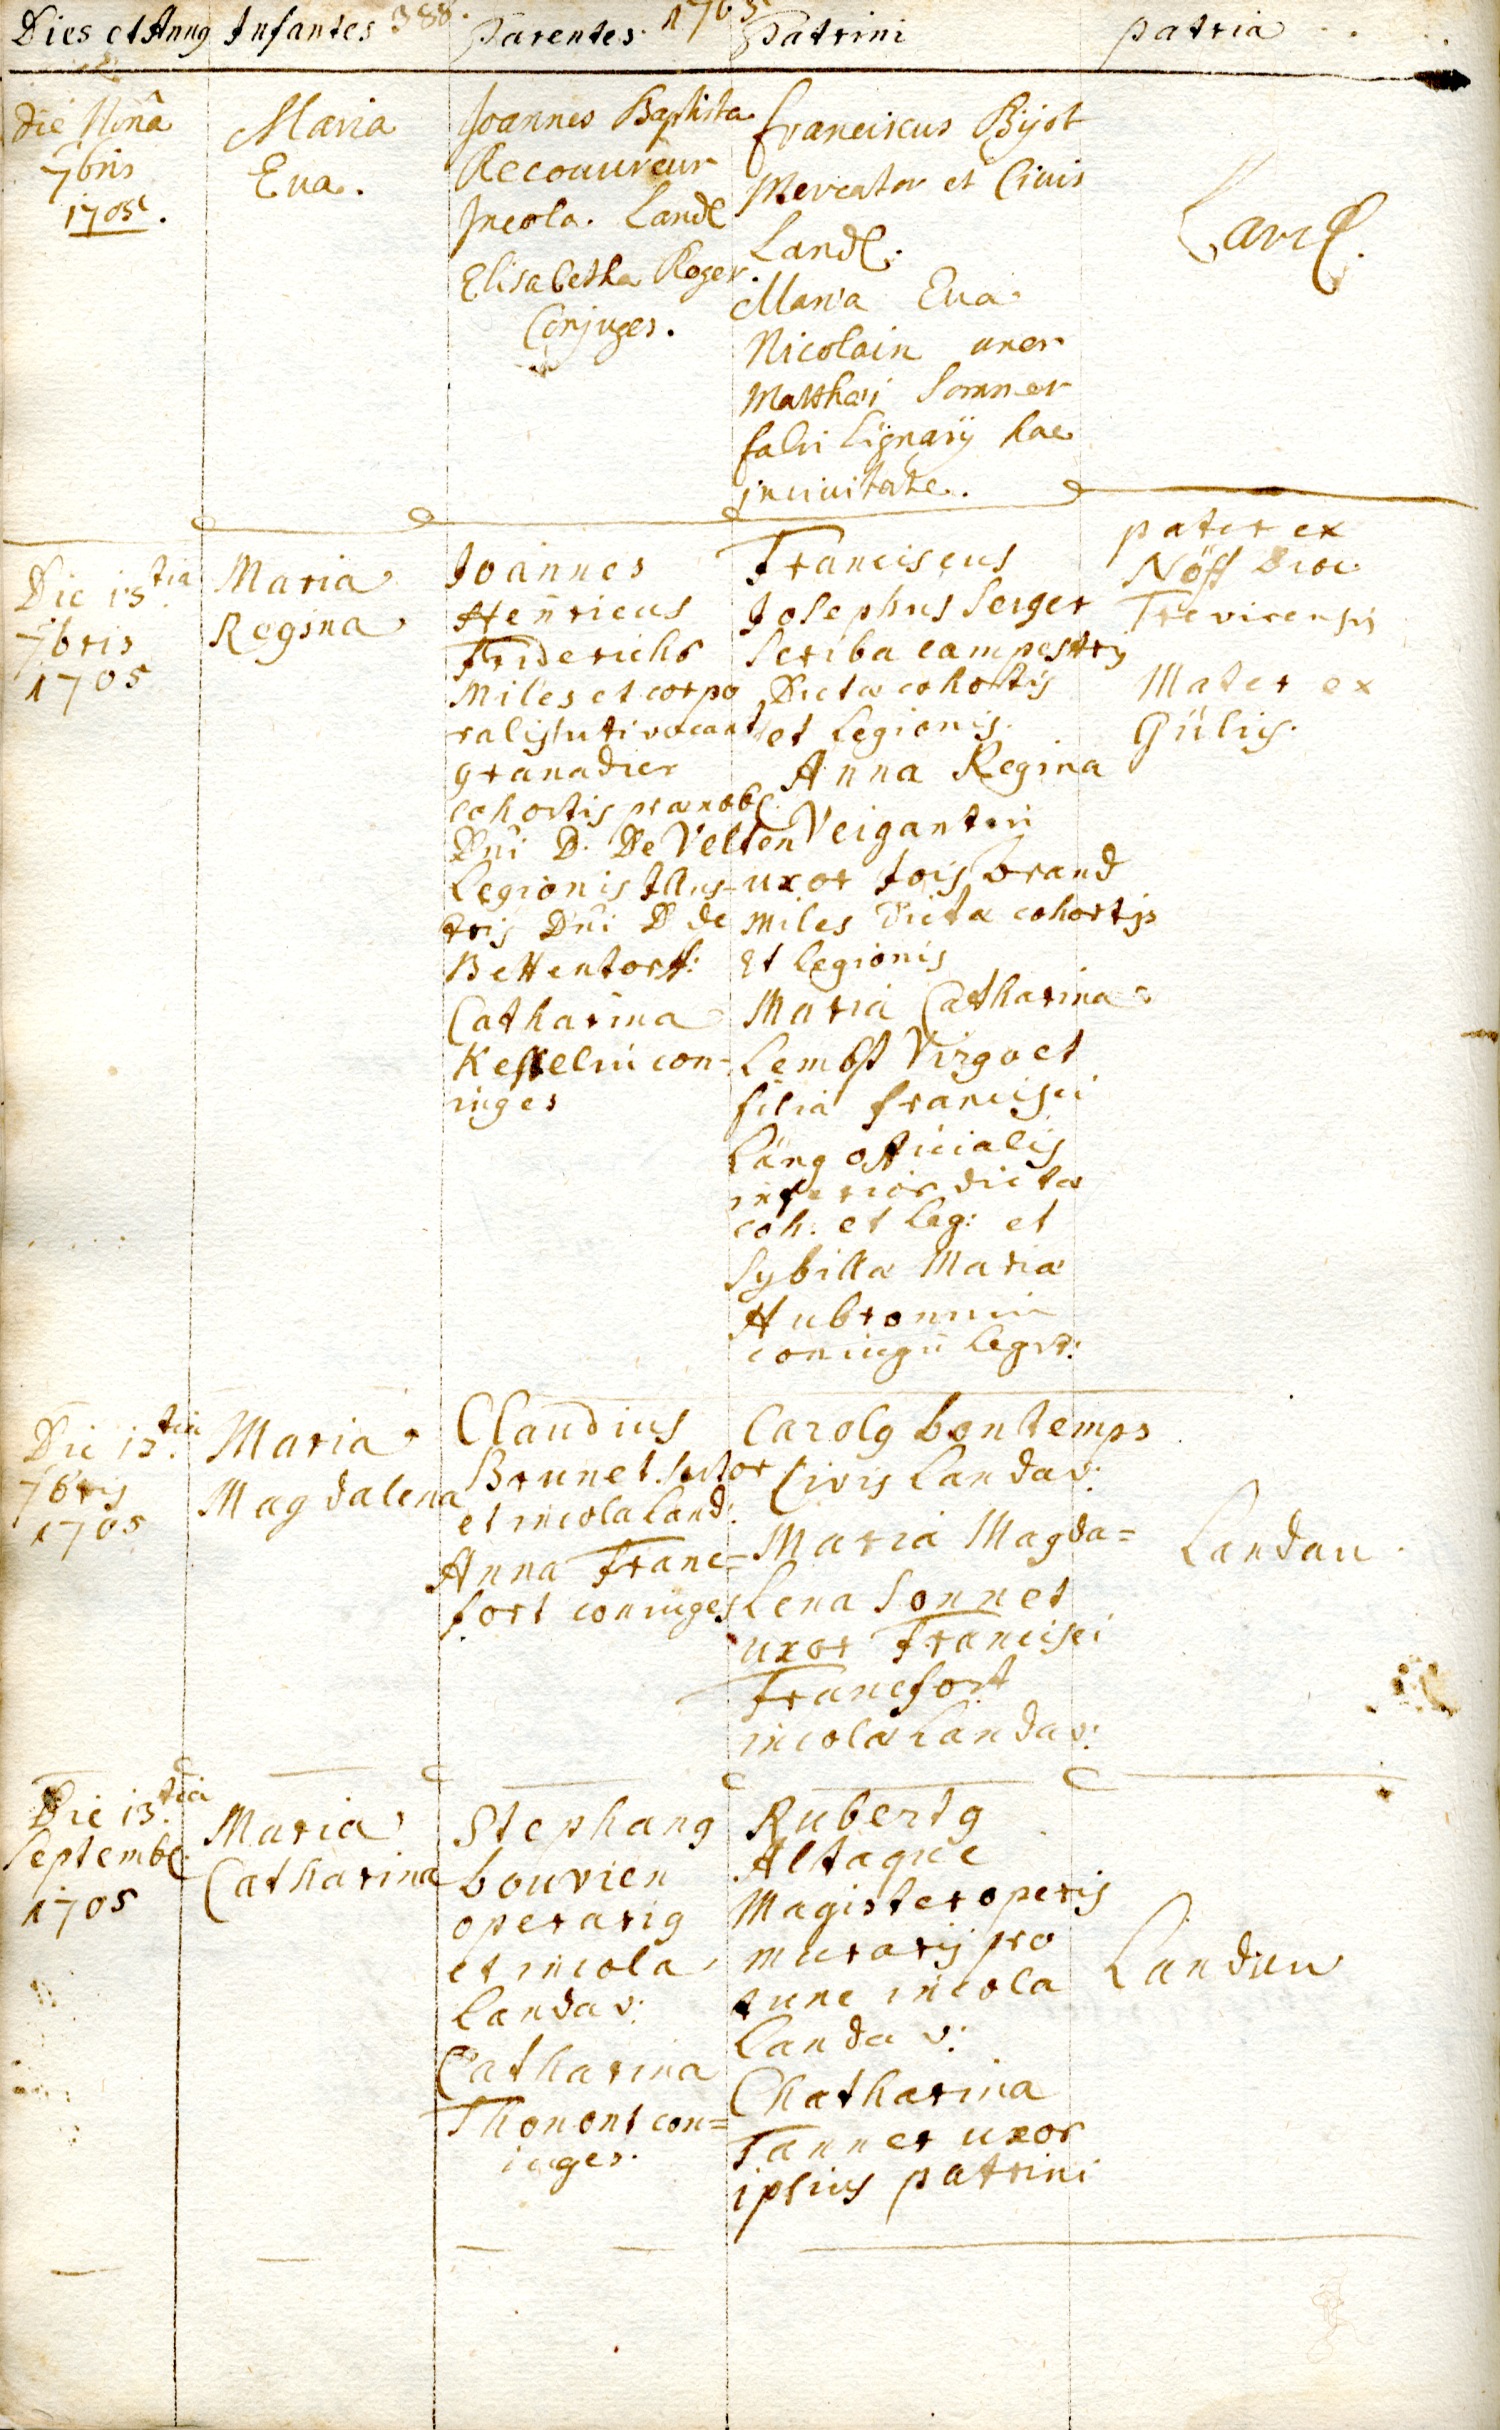 Dies et Annus Infantes 388. Parentes 1705 Patrini patria
die Nona
7bris
1705.
Maria
Eva.
Joannes Baptista
Recouureur
Incola. Land.
Elisabetha Roger.
Conjuges.
franciscus Bijot
Mercator et Civis
Land.
Maria Eva
Nicolain uxor
Matthaei Somner
fabri Lignarij hac
in civitate.
Land.
Die 13.tia
7bris
1705
Maria
Regina
Joannes
Henricus
Friderichs
Miles et corpo
ralis uti vocant
granadier
cohortis praenobl.
Dni D. De Velten
Legionis Illus-
tris Dni D de
Bettentorff:
Catharina
Kesselin con-
iuges
Franciscus
Josephus Serger
Scriba campestris
Dictae cohortis
et Legionis.
Anna Regina
Veigantin
uxor Jois brand
miles dictae cohortis
et legionis
Maria Catharina
Lembst Virgo et
filia francisci
Läng officialis
inferior dictae
coh: et Leg: et
Sybilla Maria
Hubronnin
coniugu legit:
pater ex
Nöff Dioc.
Trevirensis
Mater ex
Gülis.
Die 13.tia
7bris
1705
Maria
Magdalena
Claudius
Brunet Sutor
et incola Land:
Anna Franc=
fort coniuges
Carolg bontemps
Civis Landav:
Maria Magda=
Lena Sonnet
uxor Francisci
Francfort
incolae Landav:
Landau.
Die 13.tia
Septembr.
1705
Maria
Catharina
Stephang
bouvien
operarig
et incola
Landav:
Catharina
Thonont con=
iuges.
Rubertg
Altaque
Magister operis
murarij pro
tunc incola
Landav:
Chatharina
Tanner uxor
ipsius patrini
Landau